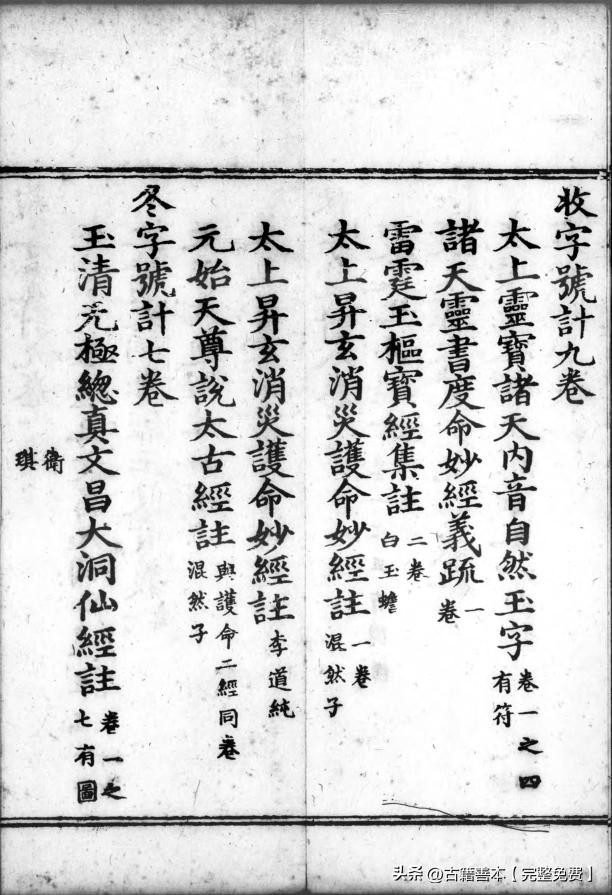 收字號計九卷
太上靈寶諸天內音自然玉字 卷一之四 有符
諸天靈書度命妙經義疏 一卷
雷霆玉樞寶經集註 二卷 白玉蟾
太上昇玄消災護命妙經註 一卷 混然子
太上昇玄消災護命妙經註 李道純
元始天尊說太古經註 與護命二經同卷 混然子
冬字號計七卷
玉清旡極總真文昌大洞仙經註 卷一之七有圖
衞琪
头条 @古籍善本【完整免费】